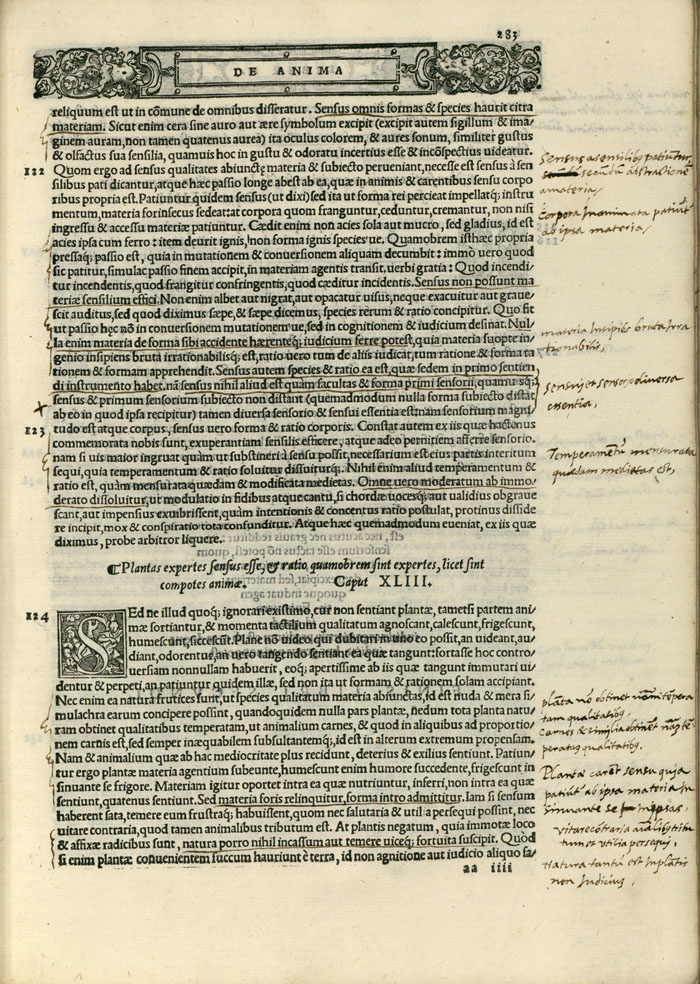 283
DE ANIMA
reliquum est ut in cōmune de omnibus disseratur. Sensus omnis formas & species haurit citra
materiam. Sicut enim cera sine auro aut ære symbolum excipit (excipit autem sigillum & ima/
ginem auram, non tamen quatenus aurea) ita oculus colorem, & aures sonum, similiter gustus
& olfactus sua sensilia, quamuis hoc in gustu & odoratu incertius esse & incōspectius uideatur.
122 Quom ergo ad sensus qualitates abiunctę materia & subiecto perueniant, necesse est sensus à sen
silibus pati dicantur, atque hæc passio longe abest ab ea, quæ in animis & carentibus sensu corpo
ribus propria est. Patiuntur quidem sensus (ut dixi) sed ita ut forma rei percieat impellatq; instru
mentum, materia forinsecus sedeat: at corpora quom franguntur, ceduntur, cremantur, non nisi
ingressu & accessu materiæ patiuntur. Cædit enim non acies sola aut mucro, sed gladius, id est
acies ipsa cum ferro: item deurit ignis, non forma ignis species ue. Quamobrem isthæc propria
pressaq; passio est, quia in mutationem & conuersionem aliquam decumbit: immò uero quod
sic patitur, simulac passio finem accipit, in materiam agentis transit. uerbi gratia: Quod incendi/
tur incendentis, quod frangitur confringentis, quod cæditur incidentis. Sensus non possunt ma
teriæ sensilium effici. Non enim albet aut nigrat, aut opacatur uisus, neque exacuitur aut graue/
scit auditus, sed quod diximus sæpe, & sæpe dicemus, species rerum & ratio concipitur. Quo fit
ut passio hęc nō in conuersionem mutationem ue, sed in cognitionem & iudicium desinat. Nul/
la enim materia de forma sibi accidente hærenteq; iudicium ferre potest, quia materia suopte in/
genio insipiens bruta irrationabilisq; est, ratio uero tum de aliis iudicat, tum ratione & forma ra
tionem & formam apprehendit. Sensus autem species & ratio ea est, quæ sedem in primo sentien
di instrumento habet. nā sensus nihil aliud est quàm facultas & forma primi sensorii, quamu sq;
sensus & primum sensorium subiecto non distant (quemadmodum nulla forma subiecto distat
ab eo in quod ipsa recipitur) tamen diuersa sensorio & sensui essentia est: nam sensorium magni
123 tudo est atque corpus, sensus uero forma & ratio corporis. Constat autem ex iis quæ hactenus
commemorata nobis sunt, exuperantiam sensilis efficere, atque adeo pernitiem afferre sensorio.
nam si uis maior ingruat quàm ut substineri à sensu possit, necessarium est eius partis interitum
sequi, quia temperamentum & ratio soluitur dissuiturq;. Nihil enim aliud temperamentum &
ratio est, quàm mensurata quædam & modificata medietas. Omne uero moderatum ab immo/
derato dissoluitur, ut modulatio in fidibus atque cantu, si chordæ uocesq; aut ualidius obgraue
scant, aut impensius exuibrissent, quàm intentionis & concentus ratio postulat, protinus disside
re incipit, mox & conspiratio tota confunditur. Atque hæc quemadmodum eueniat, ex iis quæ
diximus, probe arbitror liquere.
¶Plantas expertes sensus esse, & ratio quamobrem sint expertes, licet sint
compotes animæ. Caput XLIII.
124 SEd ne illud quoq; ignorari existimo, cur non sentiant plantæ, tametsi partem ani/
mæ sortiantur, & momenta tactilium qualitatum agnoscant, calescunt, frigescunt,
humescunt, siccescunt. Plane nō video qui dubitari in uno eo possit, an uideant, au/
diant, odorentur, an uero tangendo sentiant ea quæ tangunt: fortasse hoc contro/
uersiam nonnullam habuerit, eoq; apertissime ab iis quæ tangunt immutari ui/
dentur & perpeti, an patiuntur quidem illæ, sed non ita ut formam & rationem solam accipiant.
Nec enim ea natura frutices sunt, ut species qualitatum materia abiunctas, id est nuda & mera si
mulachra earum concipere possint, quandoquidem nulla pars plantæ, nedum tota planta natu/
ram obtinet qualitatibus temperatam, ut animalium carnes, & quod in aliquibus ad proportio/
nem carnis est, sed semper inæquabilem subsultantemq;, id est in alterum extremum propensam.
Nam & animalium quæ ab hac mediocritate plus recidunt, deterius & exilius sentiunt. Patiun/
tur ergo plantæ materia agentium subeunte, humescunt enim humore succedente, frigescunt in
sinuante se frigore. Materiam igitur oportet intra ea quæ nutriuntur, inferri, non intra ea quæ
sentiunt, quatenus sentiunt. Sed materia foris relinquitur, forma intro admittitur. Iam si sensum
haberent sata, temere eum frustraq; habuissent, quom nec salutaria & utilia persequi possint, nec
uitare contraria, quod tamen animalibus tributum est. At plantis negatum, quia immotæ loco
& affixæ radicibus sunt, natura porro nihil incassum aut temere uiceq; fortuita suscipit. Quod
si enim plantæ conuenientem succum hauriunt è terra, id non agnitione aut iudicio aliquo fa/
aa iiii
Sensus a sensilibꝰ patiuntur
secundū abstractionē
a materia,
Corpora Inanimata patiūt
ab ipsa materia,
materia Incipiēs bruta Irra
tionabilis,
Sensui et sensorio diversa
essentia,
Temperamentū mensurata
quædam medietas est,
planta nō obtinet nām tēpera
tam qualitatibꝰ,
Carnes & similia obtinēt nām tē
peratā qualitatibꝰ,
Plantæ carēt sensu quia
patiūt ab ipsa materia In
sinuante se
vitare cōtraria aīalibꝰ tribu
tum et vtilia persequi,
Natura tantū est In plantis
non Iudicius,